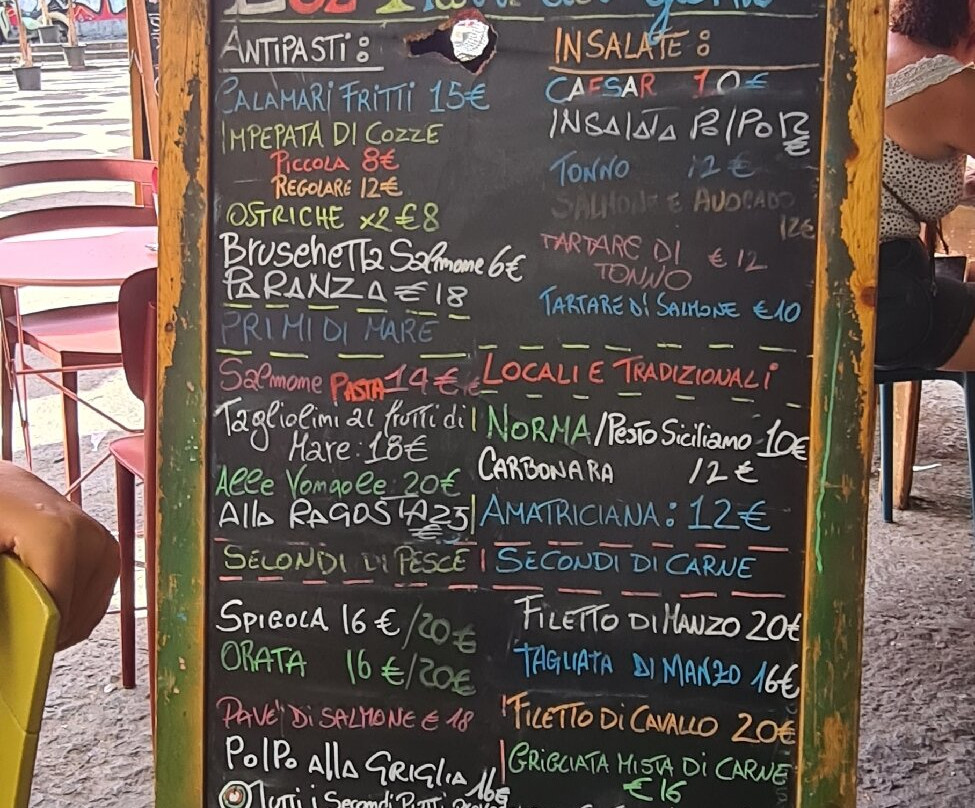 ANTIPASTI:
CALAMARI FRITTI 15€
IMPEPATA DI COZZE
PICCOLA 8€
REGOLARE 12€
OSTRICHE x2 €8
Bruschetta Salmone 6€
PARANZA €18
PRIMI DI MARE
Salmone PASTA 14€
Tagliolini ai frutti di
Mare: 18€
Alle Vongole 20€
Alla RAGOSTA 25
€
SECONDI DI PESCE
SPIGOLA 16€/20€
ORATA 16€/20€
PAVE' DI SALMONE €18
Polpo alla GRIGLIA 16€
Tutti i Secondi Piatti
INSALATE:
CAESAR 10€
INSALATA POLPO 12
€
TONNO 12€
SALMONE E AVOCADO
12€
TARTARE DI €12
TONNO
TARTARE DI SALMONE €10
LOCALI E TRADIZIONALI
NORMA/PESTO Siciliano 10€
CARBONARA 12€
AMATRICIANA: 12€
SECONDI DI CARNE
FILETTO DI MANZO 20€
TAGLIATA DI MANZO 16€
FILETTO DI CAVALLO 20€
GRIGLIATA MISTA DI CARNE
€16